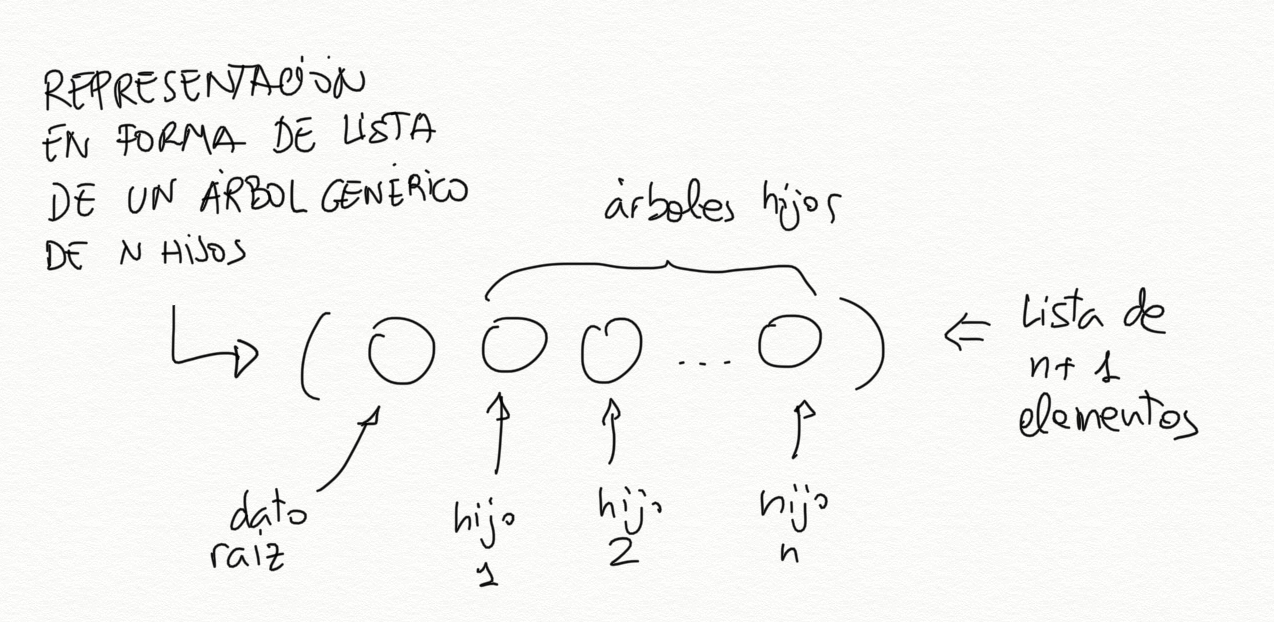 REPRESENTACIÓN
EN FORMA DE LISTA
DE UN ÁRBOL GENÉRICO
DE N HIJOS
árboles hijos
( ... )
⇐ Lista de
n+1
elementos
dato
raíz
hijo
1
hijo
2
hijo
n